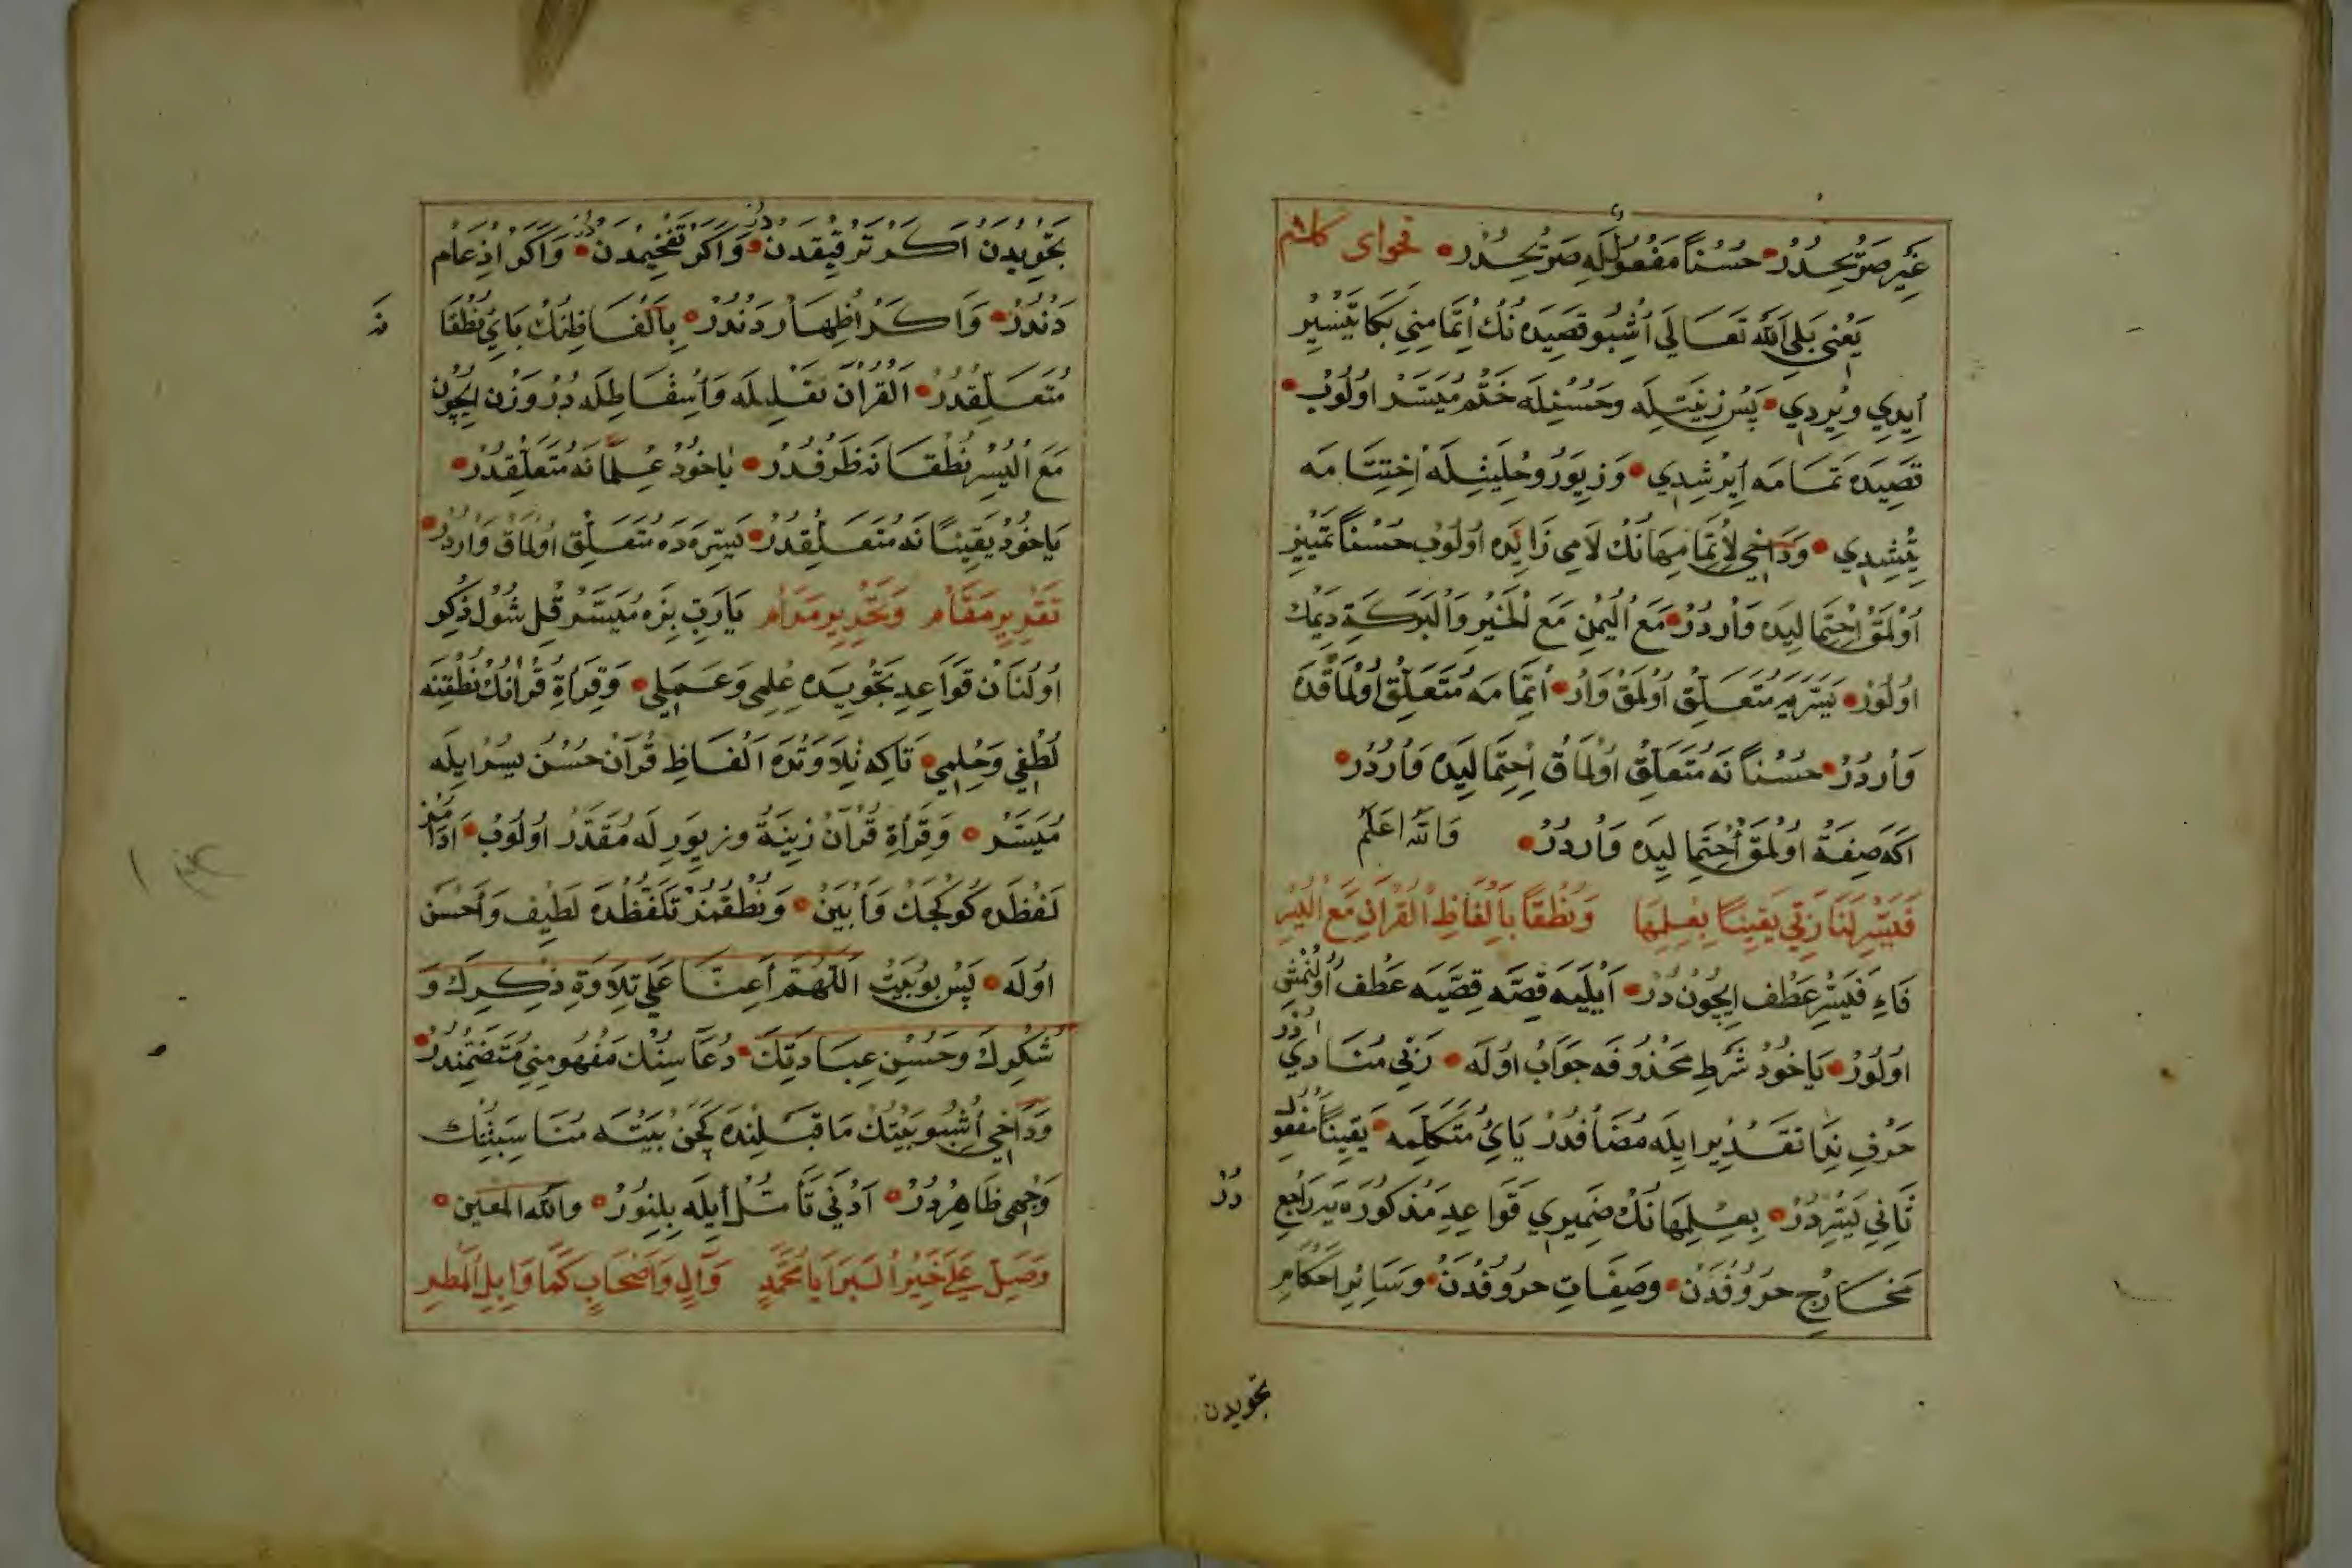 غَيْرِ صَرِيحْدُرْ • حُسْنًا مَفْعُولُ لَهِ صَرِيحْدُرْ • فحوای کلام
يَعْنِي بَلَى اَللّٰه تَعَالَى اُشْبُو قَصِيدَه نُكْ اِتْمَامِنِي بَكَا تَيْسِيرْ
اَيِدِي وِيرْدِي • پَسْ زِينَتِلَه وَحُسْنِلَه خَتْمْ مُيَسَّرْ اولُوبْ •
قَصِيدَه تَمَامَه اِيرْشْدِي • وَزِيوَرْ وحِلْيَتِلَه اِخْتِتَامَه
يِتِشْدِي • وَدَاخِي لِاِتْمَامِهَا نُكْ لَامِي زَائِدَه اولُوبْ حُسْنًا تَمْيِيزْ
اُولْمَقْ اِحْتِمَالِيدَه وَارْدُرْ • مَعَ الْيُمْنِ مَعَ الْخَيْرِ وَالْبَرَكَةِ دِيمَكْ
اولُورْ • يَسَّرَ يه مُتَعَلِّقْ اُولْمَقْ وَارْ • اِتْمَامَه مُتَعَلِّقْ اُولْمَاقْدَه
وَارْدُرْ • حُسْنًا نَه مُتَعَلِّقْ اولْمَاقْ اِحْتِمَالِيدَه وَارْدُرْ •
اكَه صِفَةْ اُولْمَقْ اِحْتِمَالِيدَه وَارْدُرْ • وَاللّٰه اَعْلَمْ
فَيَسِّرْ لَنَا رَبِّي يَقِينًا بِعِلْمِهَا وَنُطْقًا بِاَلْفَاظِ الْقُرْانِ مَعَ الْيُسْرِ
فَاءِ فَيَسِّرْ عَطْف اِيچُونْ دُرْ • اَيْلَيَه قِصَّه قِصَّيَه عَطْف اُولُنْمِش
اولُورْ • يَاخُودْ شَرْطِ مَحْذُوفَه جَوَابْ اولَه • رَبِّي مُنَادَي دُرْ
حَرْفِ نِدَا تَقْدِيرْ ايلَه مُضَافْدُرْ يَايِ مُتَكَلِّمَه • يَقِينًا مَفْعُولِ
ثَانِي يَسِّرْدُرْ • بِعِلْمِهَا نُكْ ضَمِيرِي قَوَاعِدِ مَذْكُورَه يَه رَاجِعْ دُرْ
مَخَارِجِ حُرُوفْدَنْ • وصِفَاتِ حُرُوفْدَنْ • وَسَائِرِ اَحْكَامِ
تجويدن
تَجْوِيدْدَنْ اَكَرْ تَرْقِيقْدَنْ • وَاَكَرْ تَفْخِيمْدَنْ • وَاَكَرْ اِدْغَامْ
دَنْدُرْ • وَاَكَرْ اِظْهَارْ دَنْدُرْ • بِاَلْفَاظِنُكْ بَايِ نُطْقًا نَه
مُتَعَلِّقْدُرْ • الْقُرَان نَقْلِيلَه وَاِسْقَاطِلَه دُرْ وَزْن اِيچُون
مَعَ الْيُسْرِ نُطْقًا نَه ظَرْفْدُرْ • يَاخُودْ عِلْمًا نَه مُتَعَلِّقْدُرْ •
يَاخُودْ يَقِينًا نَه مُتَعَلِّقْدُرْ • يَسِّرَه دَه مُتَعَلِّقْ اولْمَاقْ وَارْدُرْ •
تَقْدِيرِ مَقَامْ وَتَحْرِيرِ مَرَامْ يَارَبِّ بِزَه مُيَسَّرْ قِلْ شُولْ ذِكْر
اولُنَانْ قَوَاعِدِ تَجْوِيدَه عِلْمِي وَعَمَلِي • وَقِرَاۀِ قُرْانُكْ نُطْقِنِه
لُطْفِي وَحِلْمِي • تَاكِه تِلَاوَتْدَه اَلْفَاظِ قُرْآنْ حُسْن يُسْرْ ايلَه
مُيَسَّرْ • وَقِرَأَةِ قُرْآنْ زِينَةْ وزيوَرْ لَه مُقَدَّرْ اولُوبْ • اَدَامُزْ
لَفْظَدَه كُوكْچَكْ وَاَبْيَنْ • وَنُطْقُمُزْ تَلَفُّظْدَه لَطِيف وَاَحْسَنْ
اولَه • پَسْ بُو بَيْتْ اَللّٰهُمَّ اَعِنَّا عَلَى تِلَاوَةِ ذِكْرِكَ وَ
شُكْرِكَ وَحُسْنِ عِبَادَتِكَ • دُعَاسِنُكْ مَفْهُومِنِي مُتَضَمِّنْدُرْ •
وَدَاخِي اُشْبُو بَيْتُكْ مَاقَبْلِنْدَه كَچَنْ بَيْتَه مُنَاسَبَتِنُكْ
وَجْهِي ظَاهِرْدُرْ • اَدْنَي تَأَمُّلْ اَيلَه بِلِنُورْ • واَللّٰه المعين •
وَصَلِّ عَلَى خَيْرِ الْبَرَايَا مُحَمَّدٍ وَآلٍ وَاَصْحَابٍ كَمَا وَابِلِ الْمَطَرِ